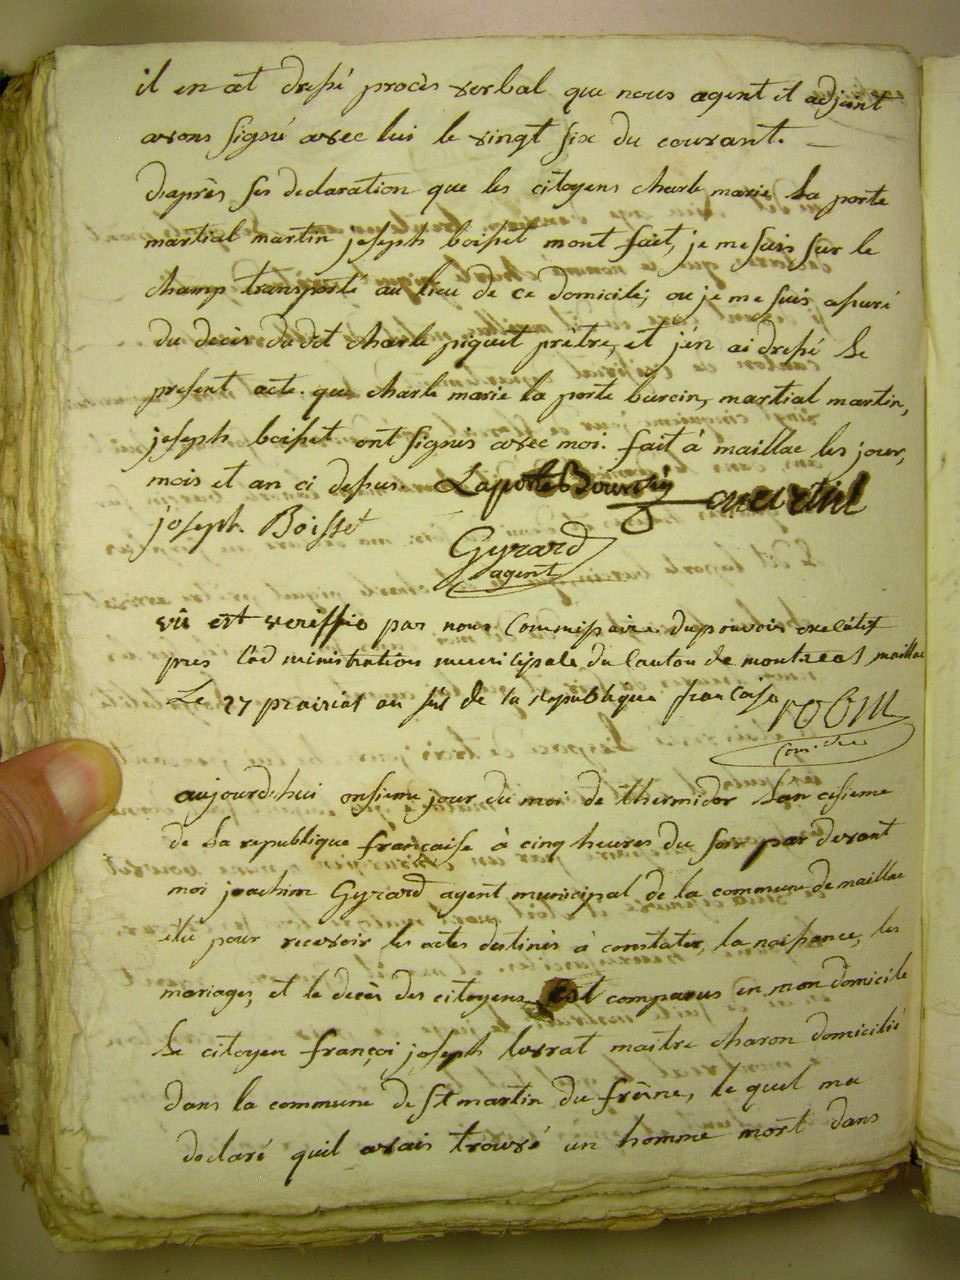 il en at dressé procès verbal que nous agent et adjoint
avons signé avec lui le vingt six du courant.
d'après ses declaration que les citoyens charle marie la porte
martial martin joseph boisset mont fait, je me suis sur le
champ transporté au lieu de ce domicile; ou je me suis assuré
du decès dudit charle piquet prêtre, et j'en ai dressé le
present acte. que charle marie la porte burcin, martial martin,
joseph boisset ont signés avec moi. fait à maillac les jour,
mois et an ci dessus. Laporte
joseph Boisset
Gyrard
agent
vü est veriffié par nous Commissaire du pouvoir
pres l'administration municipale du Canton de montreal maillac
Le 27 prairial an six de la republique francaise robin
aujourdehui onsieme jour du moi de thermidor lan
de la republique française à cinq heures du soir par devant
moi joachim Gyrard agent municipal de la commune de maillac
élû pour recevoir les actes destinés à constater, la naissance, les
mariages, et le decès des citoyens est comparus en mon domicile
le citoyen françoi joseph maitre charon domicilié
dans la commune de St martin du frêne, le quel ma
declaré quil avais trouvé un homme mort dans